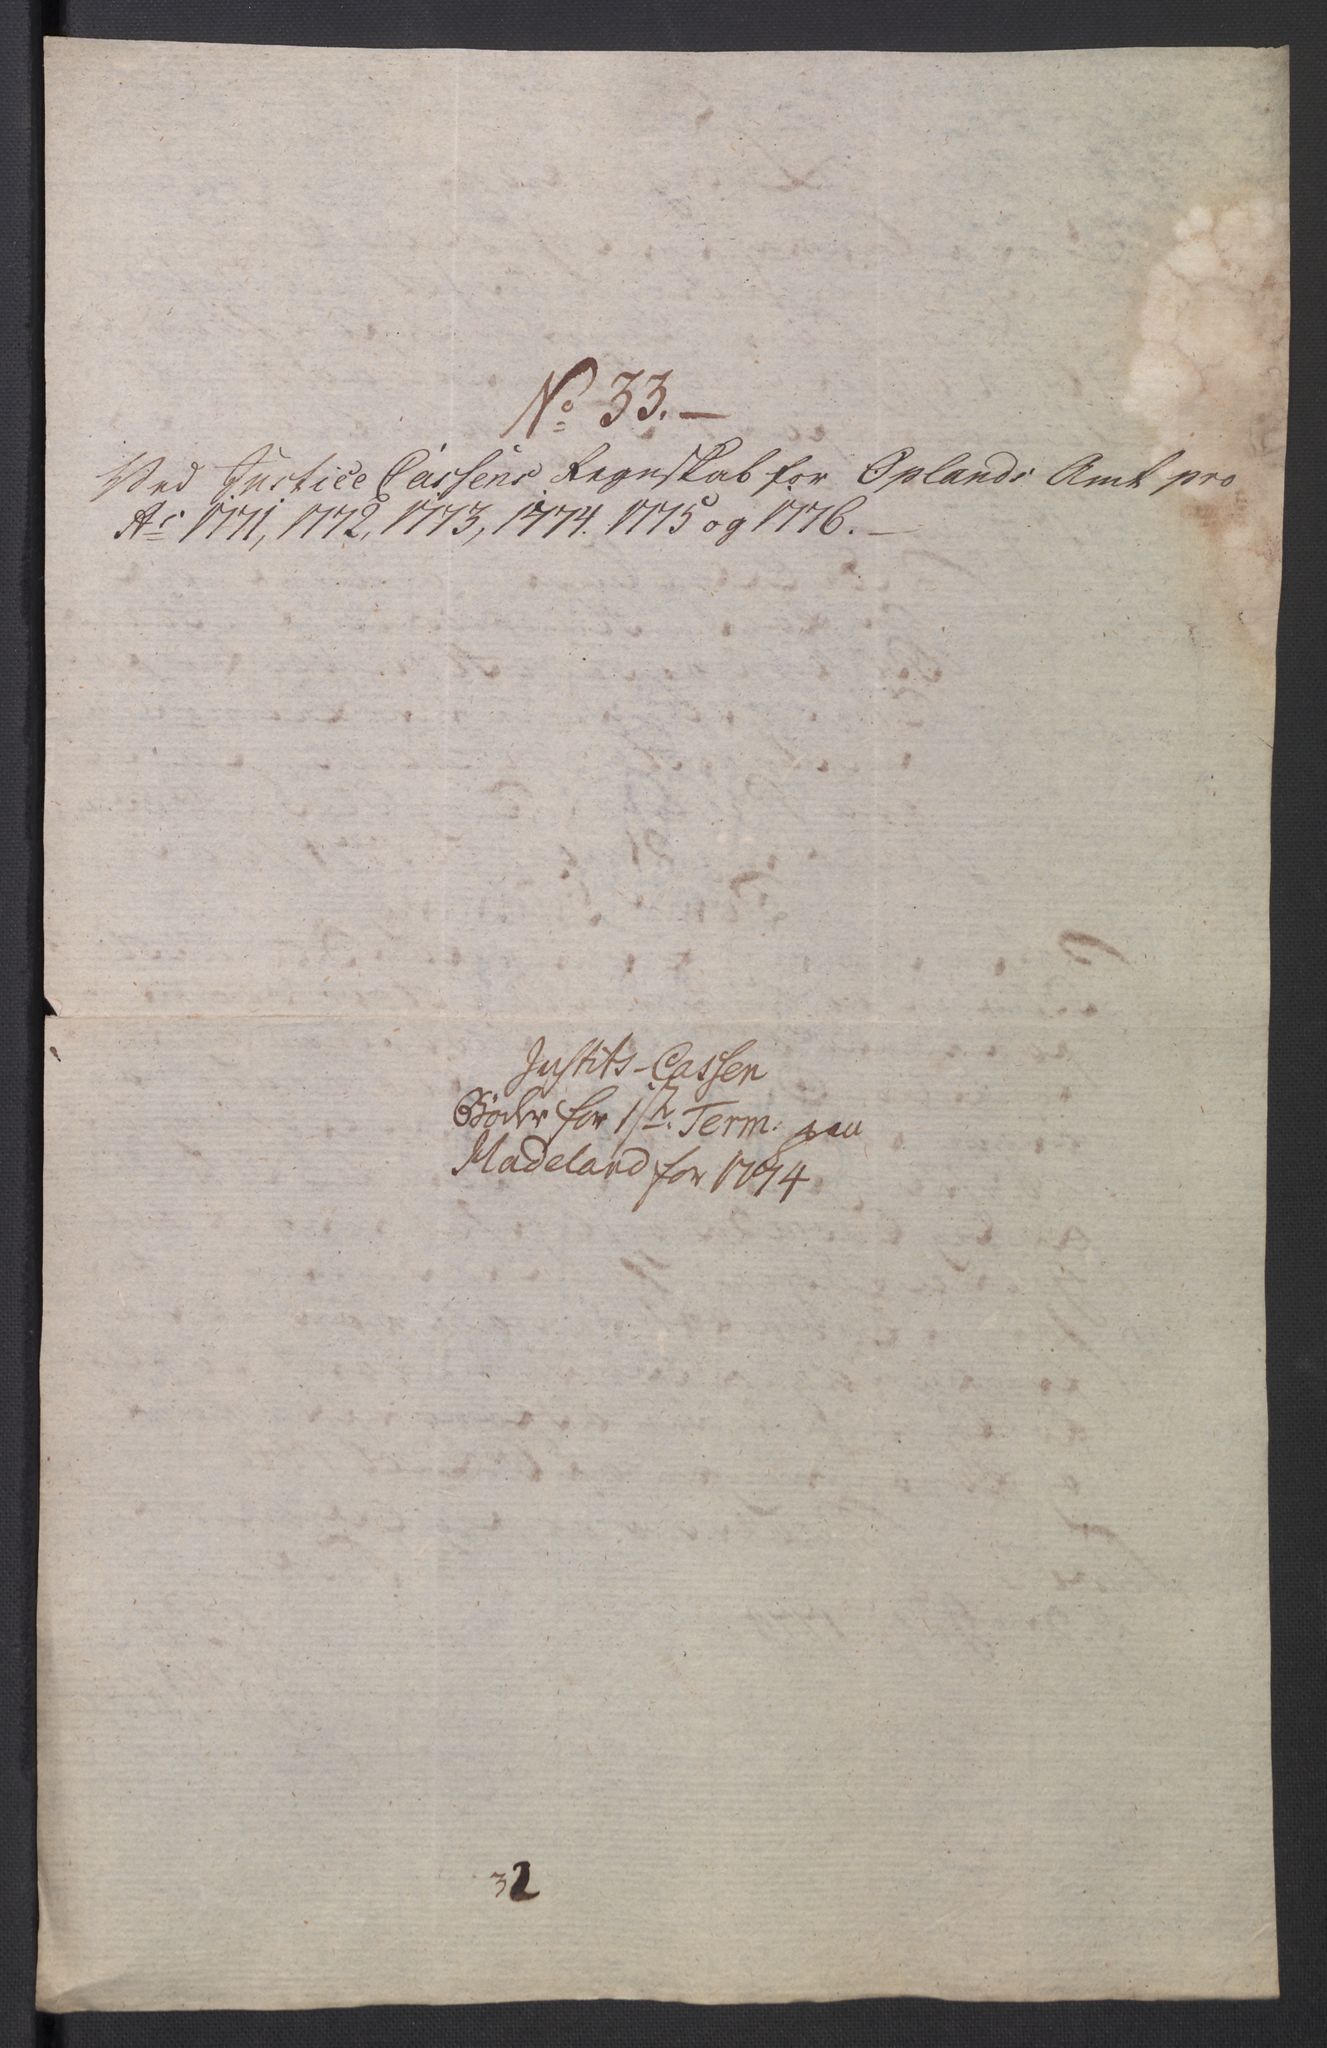 No 33. —
Ved Justice Cassens Regnskab for Oplands Amt pro
Ao 1771, 1772, 1773, 1774. 1775 og 1776. —
Justits-Cassen
Bøder for 1ste Term: paa
Hadeland for 1774
32